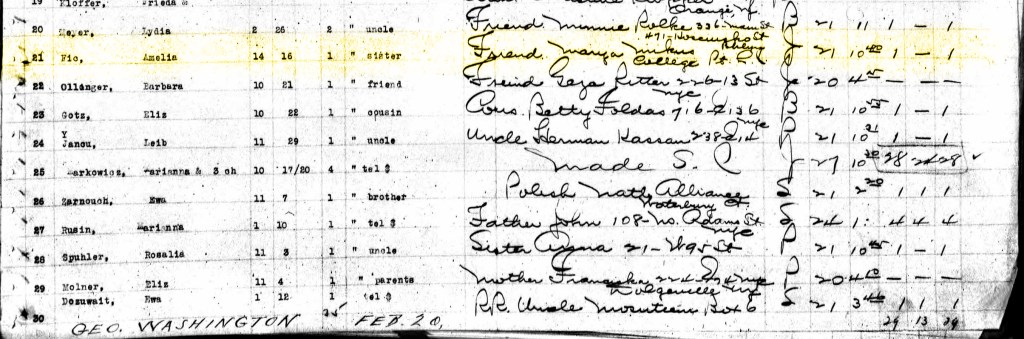 19 Kloffer, Frieda &
Orange NJ
20 Meyer, Lydia 2 26 2 " uncle Friend Minnie Polke 336- St 21 11 1 — 1
College Pt. L.I.
21 Fic, Amelia 14 16 1 " sister Friend 21 10 40 1 — 1
22 Ollanger, Barbara 10 21 1 " friend Freind Geza Ritter 226-13 St 20 4 25 — — —
nyc
23 Gotz, Eliz 10 22 1 " cousin Cous. Betty Foldas 716-E 136 21 10 55 1 — 1
nyc
24 Yanou, Leib 11 29 1 " uncle Uncle Herman Kassan 238 E 14 21 10 21 1 — 1
made S. 27 10 30 28 24 28
25 Markowicz, Marianna & 3 ch 10 17/20 4 " tel $
26 Zarnouch, Ewa 11 7 1 " brother Polish Natl. Alliance 21 2 20 1 1 1
Waterbury Ct.
27 Rusin, Marianna 1 10 1 " tel $ Father John 108- No. Adams St 24 1: 4 4 4
nyc
28 Spuhler, Rosalia 11 3 1 " uncle Sister Anna 21- W 95 St 21 10 45 1 — 1
29 Molner, Eliz 11 4 1 " parents Mother nyc 20 4 10 — — —
Dolgeville NY
30 Dozuwait, Ewa 1 12 1 tel $ R.R. Uncle Box 6 21 3 40 1 1 1
29 13 29
GEO. WASHINGTON FEB 20,